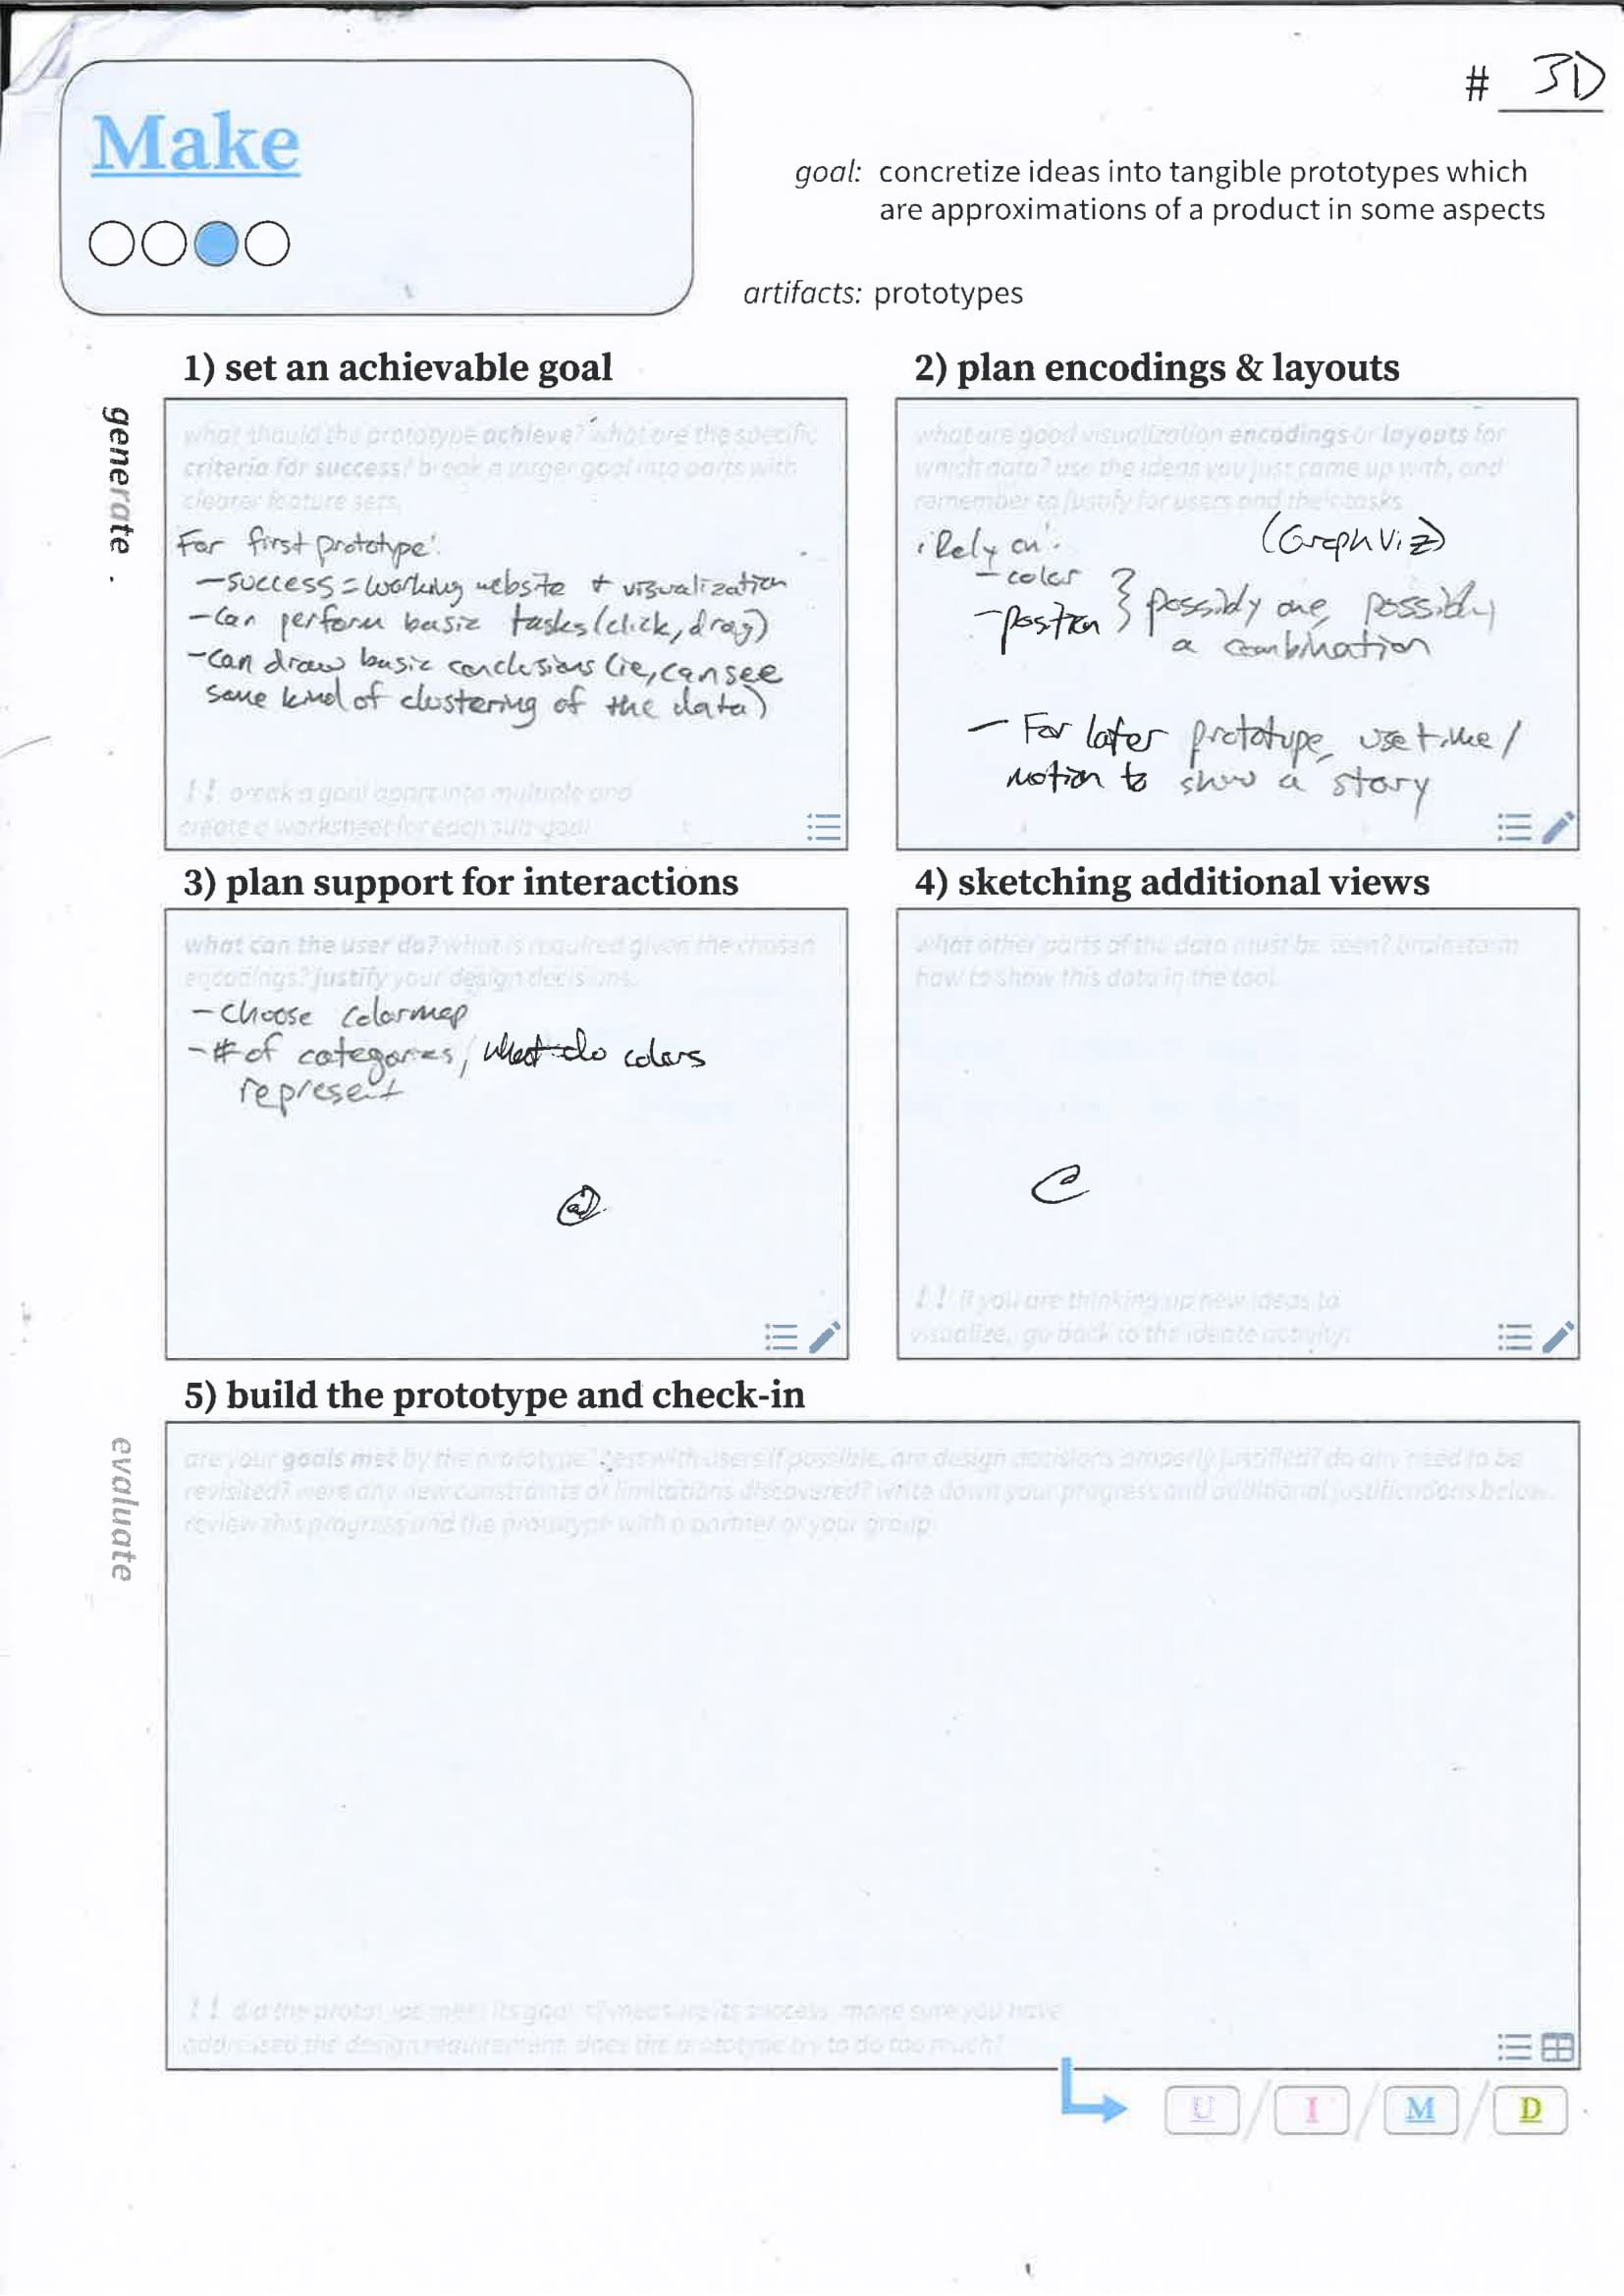 # 3D
Make
goal: concretize ideas into tangible prototypes which
are approximations of a product in some aspects
artifacts: prototypes
generate
1) set an achievable goal
what should the prototype achieve? what are the specific
criteria for success? break a larger goal into parts with
clearer feature sets.
For first prototype:
- success = working website + visualization
- Can perform basic tasks (click, drag)
- Can draw basic conclusions (ie, can see
some kind of clustering of the data)
!! break a goal apart into multiple and
create a worksheet for each sub-goal
2) plan encodings & layouts
what are good visualization encodings or layouts for
which data? use the ideas you just came up with, and
remember to justify for users and their tasks
Rely on: (GraphViz)
- color
- position } possibly one, possibly
a combination
- For later prototype, use time/
motion to show a story
3) plan support for interactions
what can the user do? what is required given the chosen
encodings? justify your design decisions.
- choose colormap
- # of categories, what do colors
represent
4) sketching additional views
what other parts of the data must be seen? brainstorm
how to show this data in the tool.
!! if you are thinking up new ideas to
visualize, go back to the ideate activity!
evaluate
5) build the prototype and check-in
are your goals met by the prototype? test with users if possible. are design decisions properly justified? do any need to be
revisited? were any new constraints or limitations discovered? write down your progress and additional justifications below.
review this progress and the prototype with a partner or your group.
!! did the prototype meet its goals? measure its success. make sure you have
addressed the design requirement. does the prototype try to do too much?
U / I / M / D